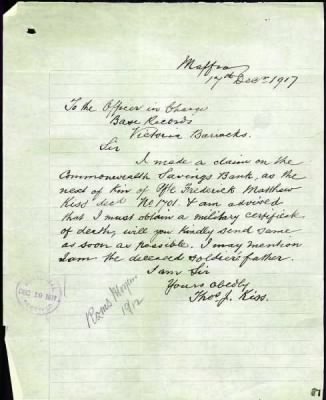 Maffra
17th Decr. 1917
To the Officer in Charge
Base Records
Victoria Barracks.
Sir
I made a claim on the
Commonwealth Savings Bank, as the
next of Kin of Pte Frederick Matthew
Kiss decd No 1701. & am advised
that I must obtain a military certificate
of death, will you kindly send same
as soon as possible. I may mention
I am the deceased soldiers father.
I am Sir
Yours obedly
Thos J. Kiss.
DEC 19 1917
19/12